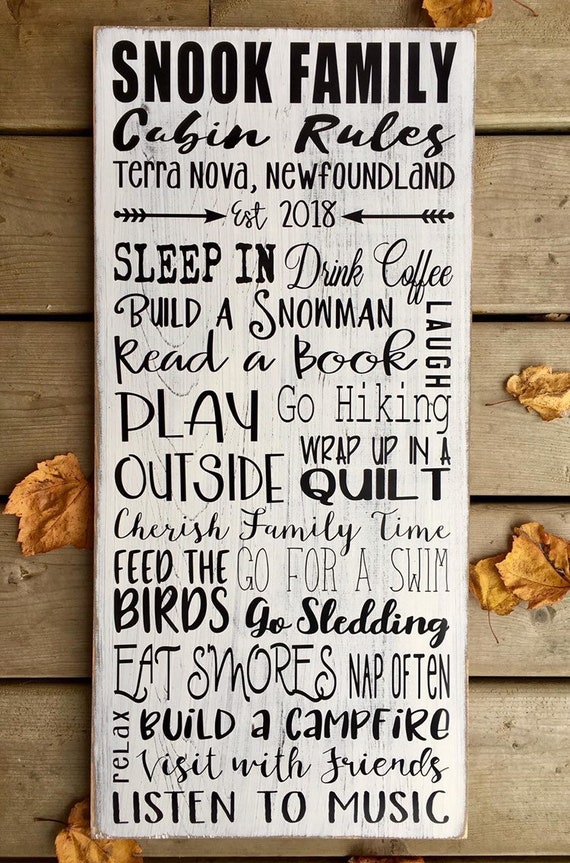 SNOOK FAMILY
Cabin Rules
Terra Nova, Newfoundland
Est 2018
SLEEP IN Drink Coffee
BUILD A SNOWMAN
LAUGH
Read a Book
PLAY OUTSIDE
Go Hiking
WRAP UP IN A QUILT
Cherish Family Time
FEED THE BIRDS
GO FOR A SWIM
Go Sledding
EAT S'MORES NAP OFTEN
RELAX
BUILD A CAMPFIRE
Visit with Friends
LISTEN TO MUSIC